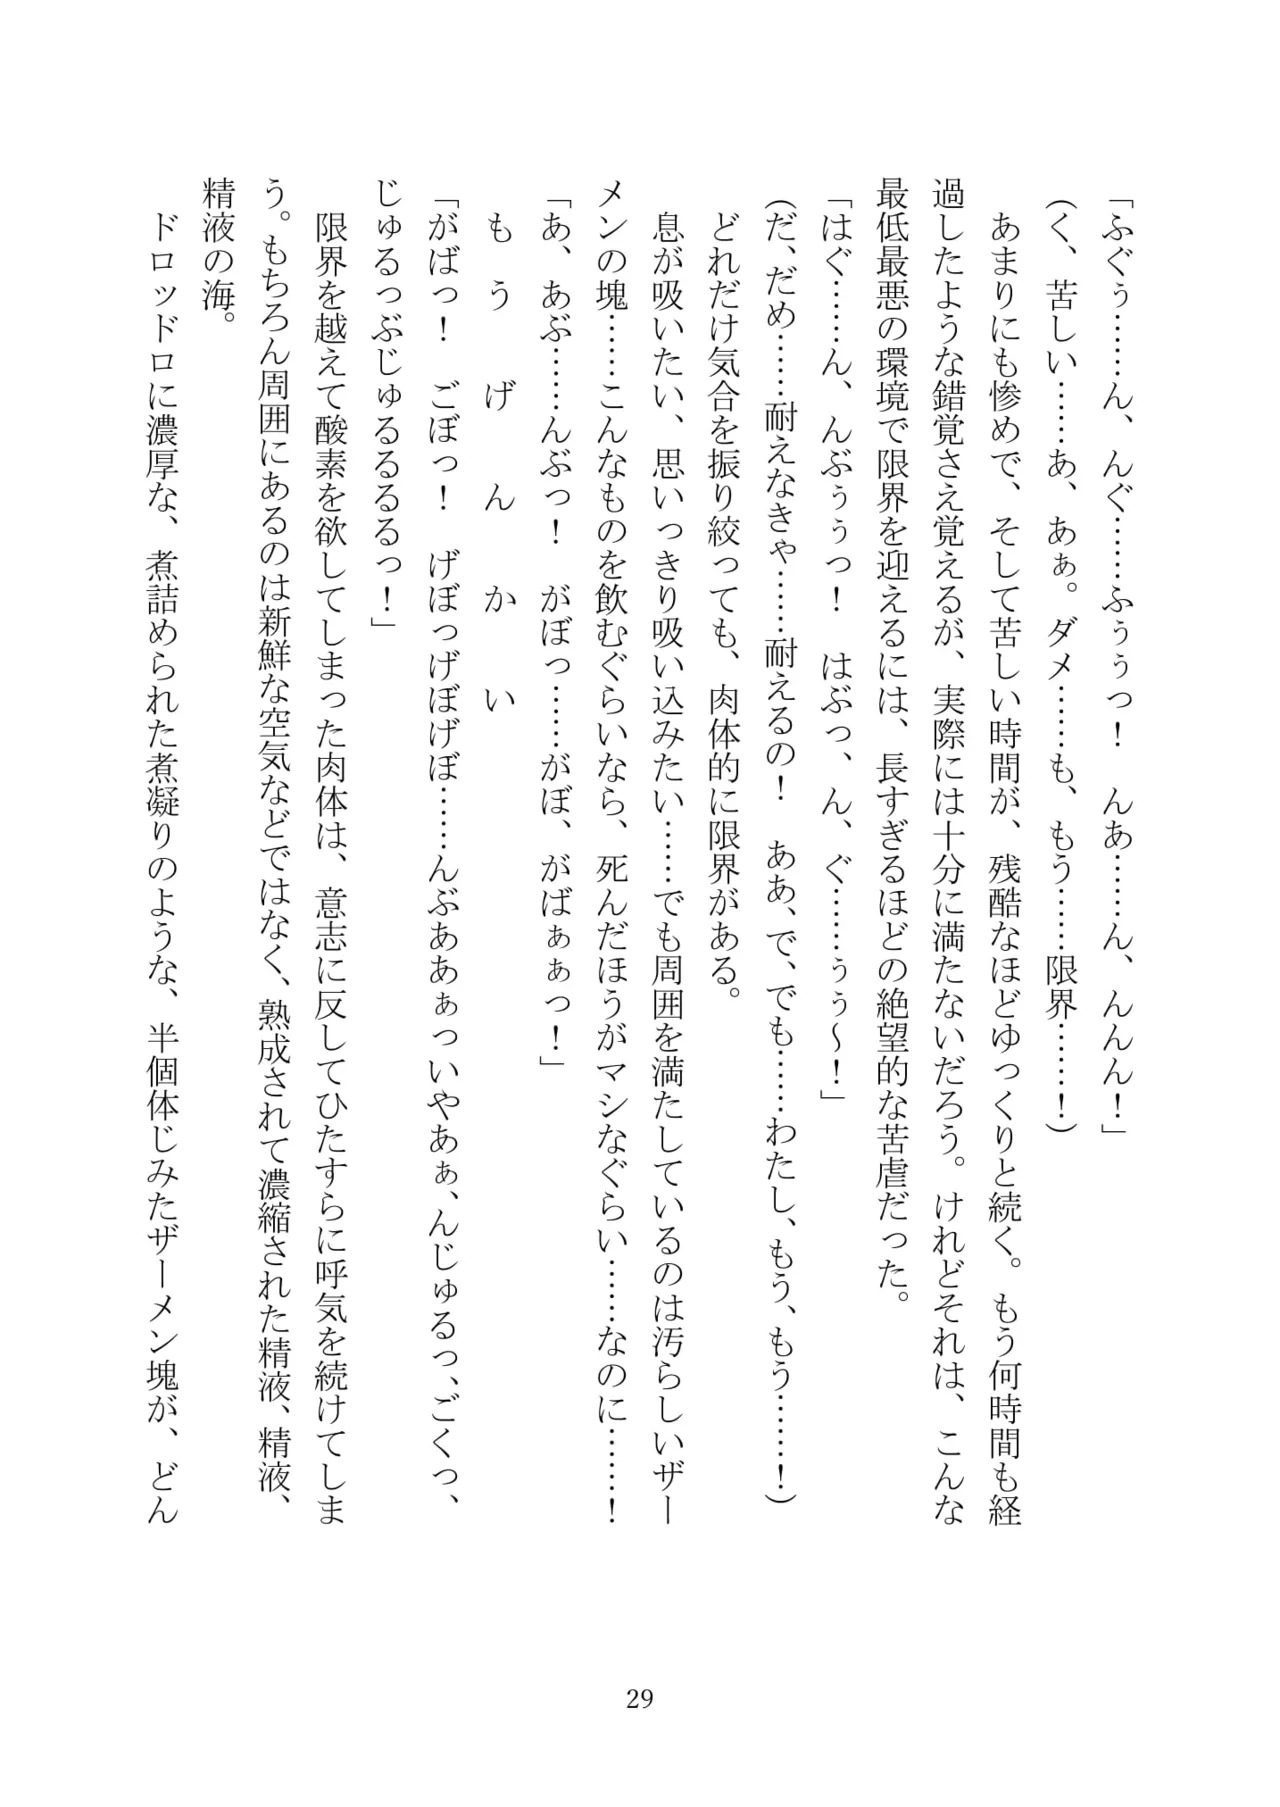 「ふぐぅ……ん、んぐ……ふぅぅっ！　んあ……ん、んんん！」
(く、苦しい……あ、あぁ。ダメ……も、もう……限界……！)
　あまりにも惨めで、そして苦しい時間が、残酷なほどゆっくりと続く。もう何時間も経
過したような錯覚さえ覚えるが、実際には十分に満たないだろう。けれどそれは、こんな
最低最悪の環境で限界を迎えるには、長すぎるほどの絶望的な苦虐だった。
「はぐ……ん、んぶぅぅっ！　はぶっ、ん、ぐ……ぅぅ～！」
(だ、だめ……耐えなきゃ……耐えるの！　ああ、で、でも……わたし、もう、もう……！)
　どれだけ気合を振り絞っても、肉体的に限界がある。
　息が吸いたい、思いっきり吸い込みたい……でも周囲を満たしているのは汚らしいザー
メンの塊……こんなものを飲むぐらいなら、死んだほうがマシなぐらい……なのに……！
「あ、あぶ……んぶっ！　がぼっ……がぼ、がばぁぁっ！」
　も　う　　げ　ん　か　い
「がばっ！　ごぼっ！　げぼっげぼげぼ……んぶああぁっいやあぁ、んじゅるっ、ごくっ、
じゅるっぶじゅるるるるっ！」
　限界を越えて酸素を欲してしまった肉体は、意志に反してひたすらに呼気を続けてしま
う。もちろん周囲にあるのは新鮮な空気などではなく、熟成されて濃縮された精液、精液、
精液の海。
　ドロッドロに濃厚な、煮詰められた煮凝りのような、半個体じみたザーメン塊が、どん
29